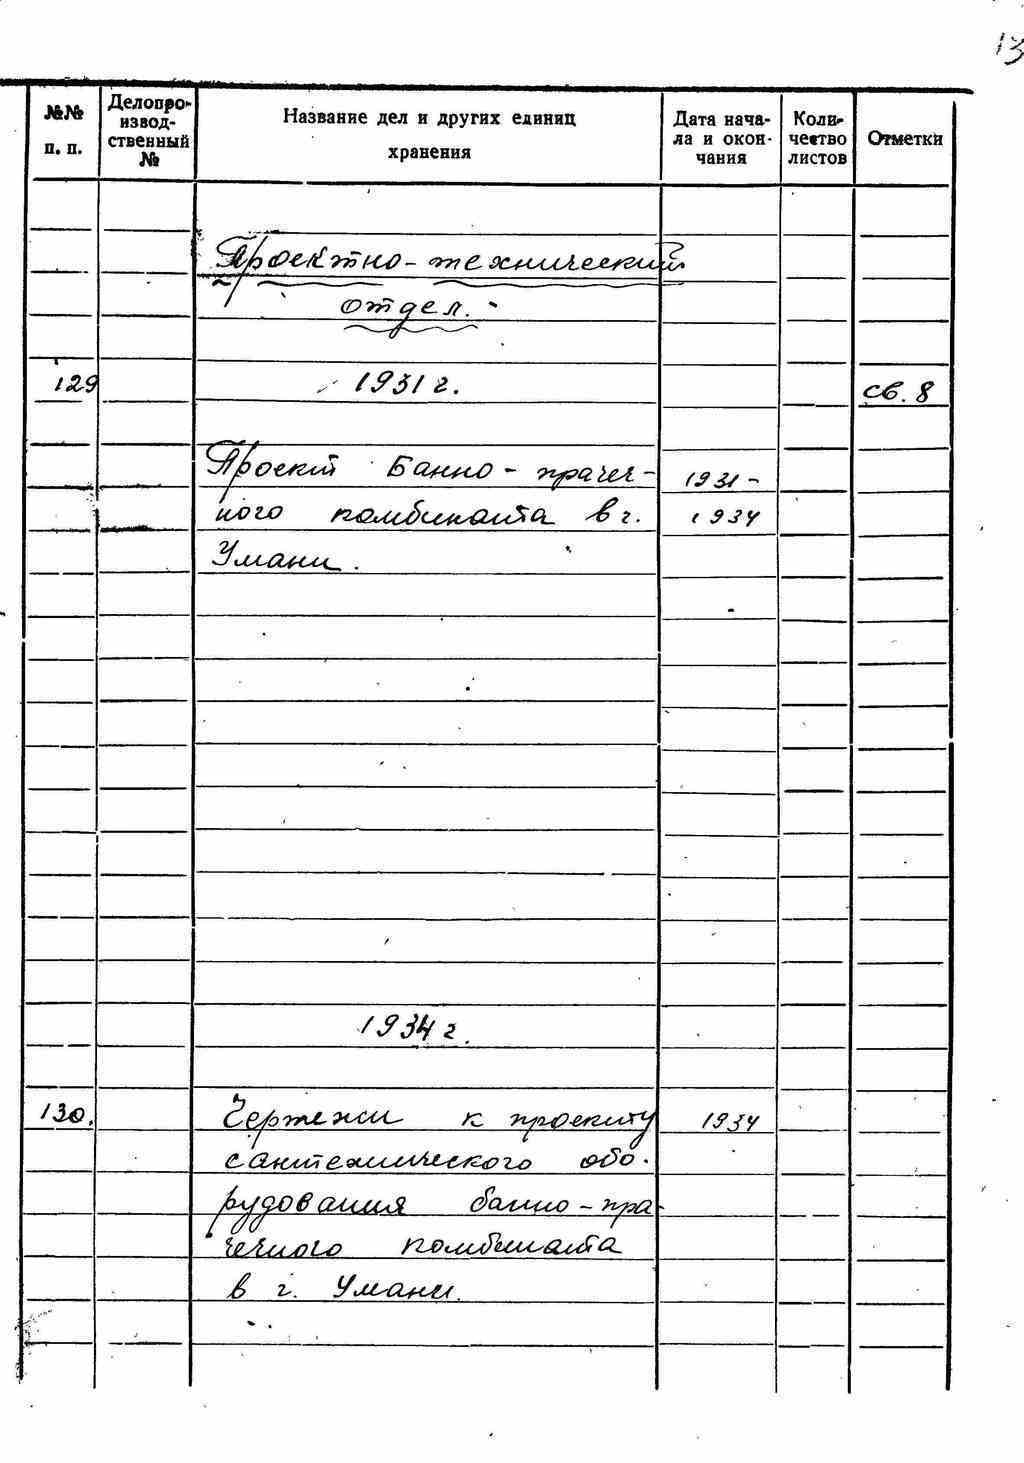 13
№№ п. п.
Делопро-
извод-
ственный
№
Название дел и других единиц
хранения
Дата нача-
ла и окон-
чания
Коли-
чество
листов
Отметки
Проектно-технический
отдел.
129
1931 г.
св. 8
Проект Банно-прачеч-
ного комбината в г.
Умани.
1931-
1934
1934 г.
130.
Чертежи к проекту
сантехнического обо-
рудования банно-пра-
чечного комбината
в г. Умани.
1934